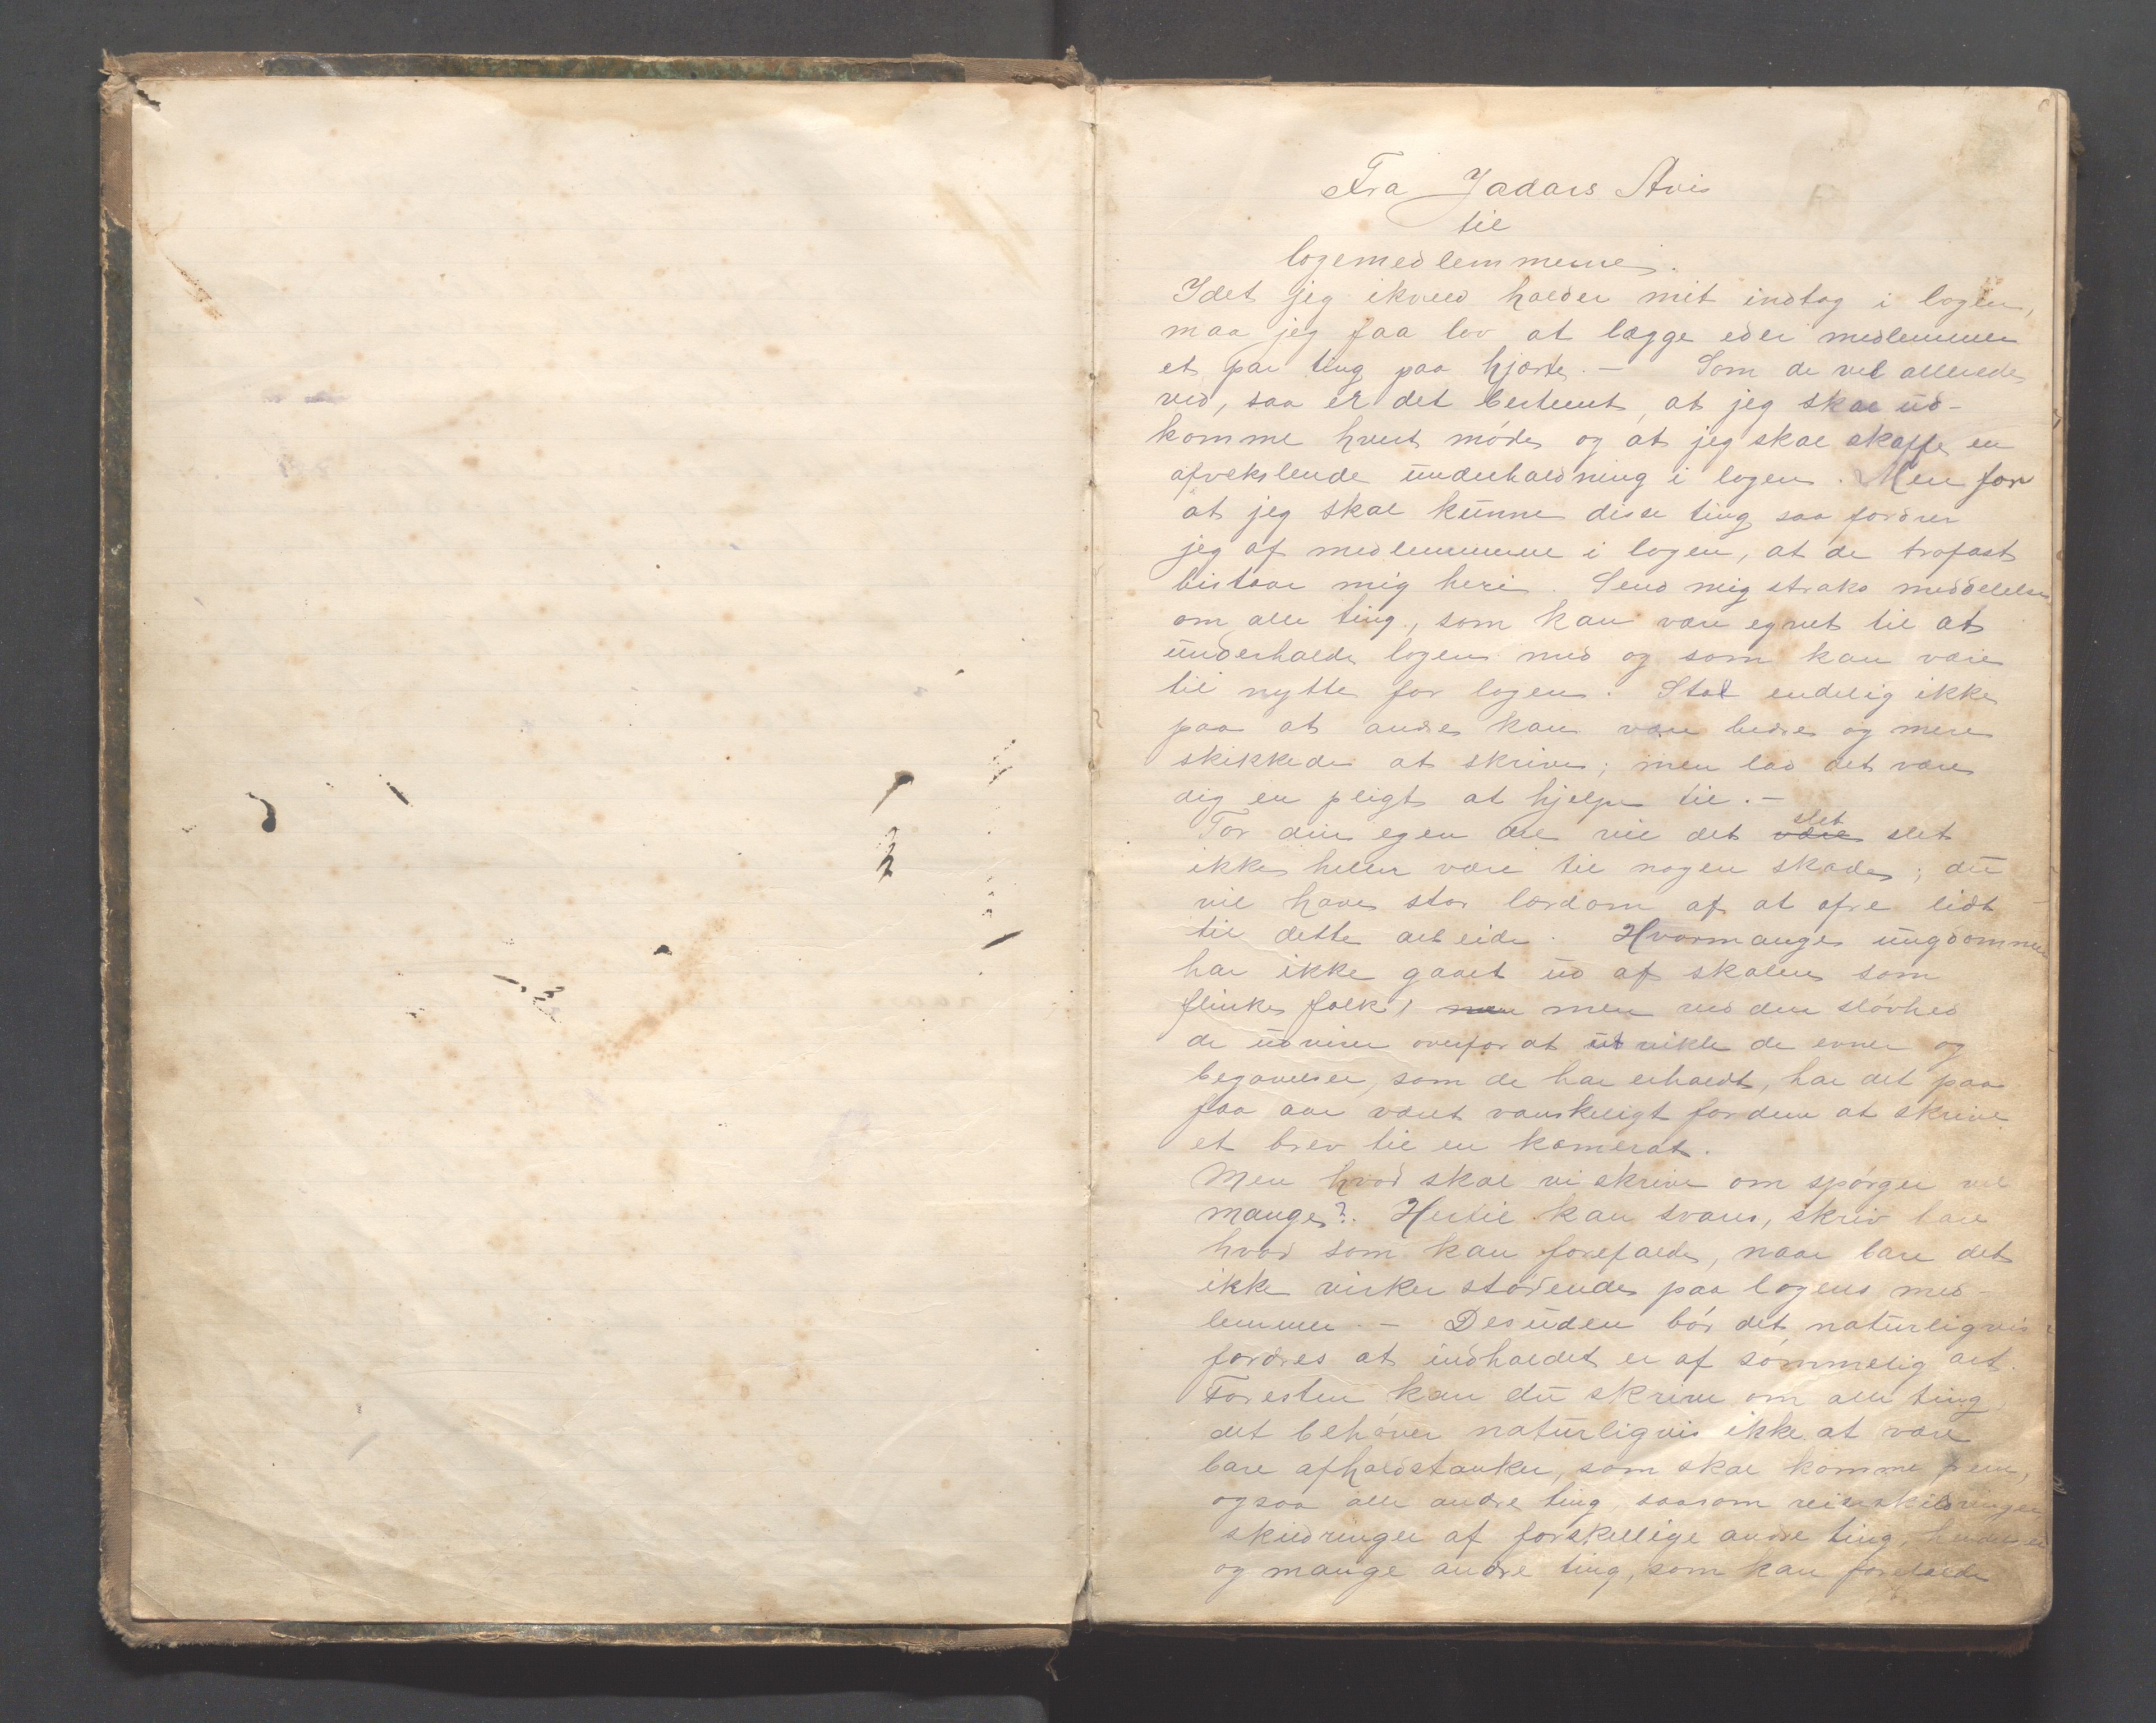 Fra Jadars Avis
til
logemedlemmerne.
Idet jeg ikveld holder mit indtog i logen,
maa jeg faa lov at lægge eder medlemmer
et par ting paa hjerte. – Som de vel allerede
ved, saa er det bestemt, at jeg skal ud-
komme hvert møde og at jeg skal skaffe en
afvekslende underholdning i logen. Men for
at jeg skal kunne disse ting saa fordrer
jeg af medlemmerne i logen, at de trofast
bistaar mig heri. Send mig straks meddelelse
om alle ting, som kan være egnet til at
underholde logen med og som kan være
til nytte for logen. Stol endelig ikke
paa at andre kan være bedre og mere
skikkede at skrive; men lad det være
dig en pligt at hjelpe til. –
For din egen del vil det være slet slet
ikke heller være til nogen skade; du
vil have stor lærdom af at ofre lidt
til dette arbeide. Hvormange ungdommer
har ikke gaaet ud af skolen som
flinke folk, men men ved den sløvhed
de udviser overfor at udvikle de evner og
begavelser, som de har erholdt, har det paa
faa aar været vanskeligt for dem at skrive
et brev til en kamerat.
Men hvad skal vi skrive om spørger vel
mange? Hertil kan svares, skriv bare
hvad som kan forefalde, naar bare det
ikke virker stødende paa logens med-
lemmer. – Desuden bør det naturligvis
fordres at indholdet er af sømmelig art.
Foresten kan du skrive om alle ting
det behøver naturligvis ikke at være
bare afholdstanker, som skal komme frem,
ogsaa alle andre ting, saasom reiseskildringer
skildringer af forskellige andre ting,
og mange andre ting, som kan forefalde